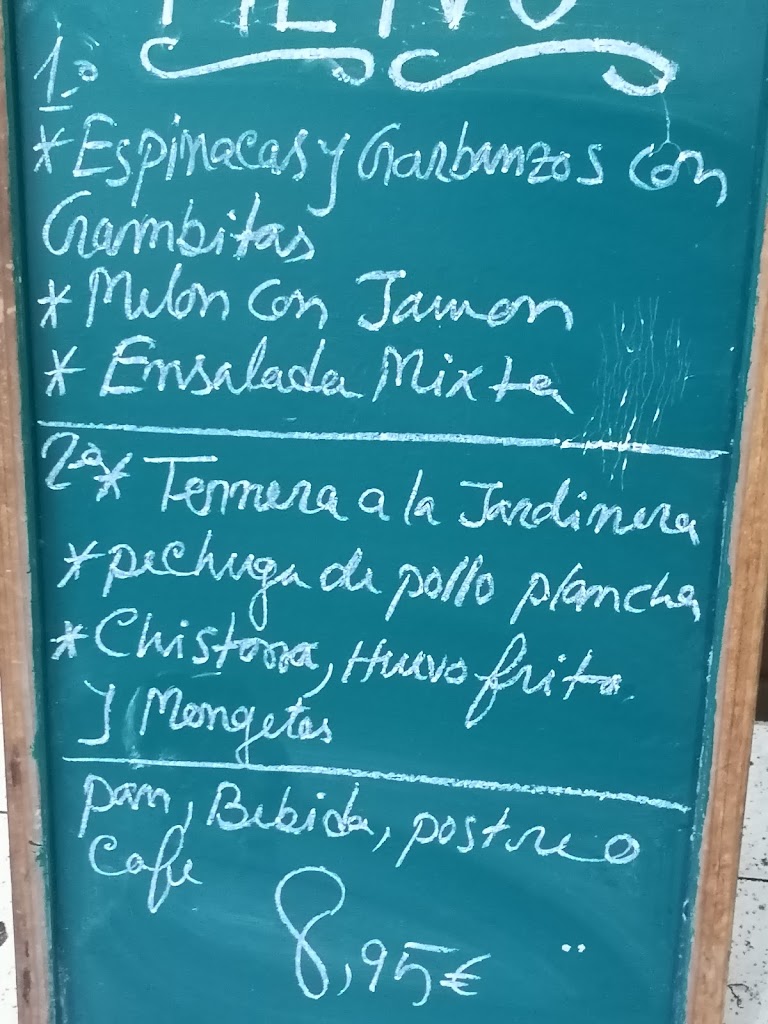 MENÚ
1.º
* Espinacas y Garbanzos con
Gambitas
* Melon con Jamon
* Ensalada Mixta
2ª * Ternera a la Jardinera
* pechuga de pollo plancha
* Chistorra, Huevo frito
y Mongetes
pan, Bebida, postre o
Cafe
8,95€